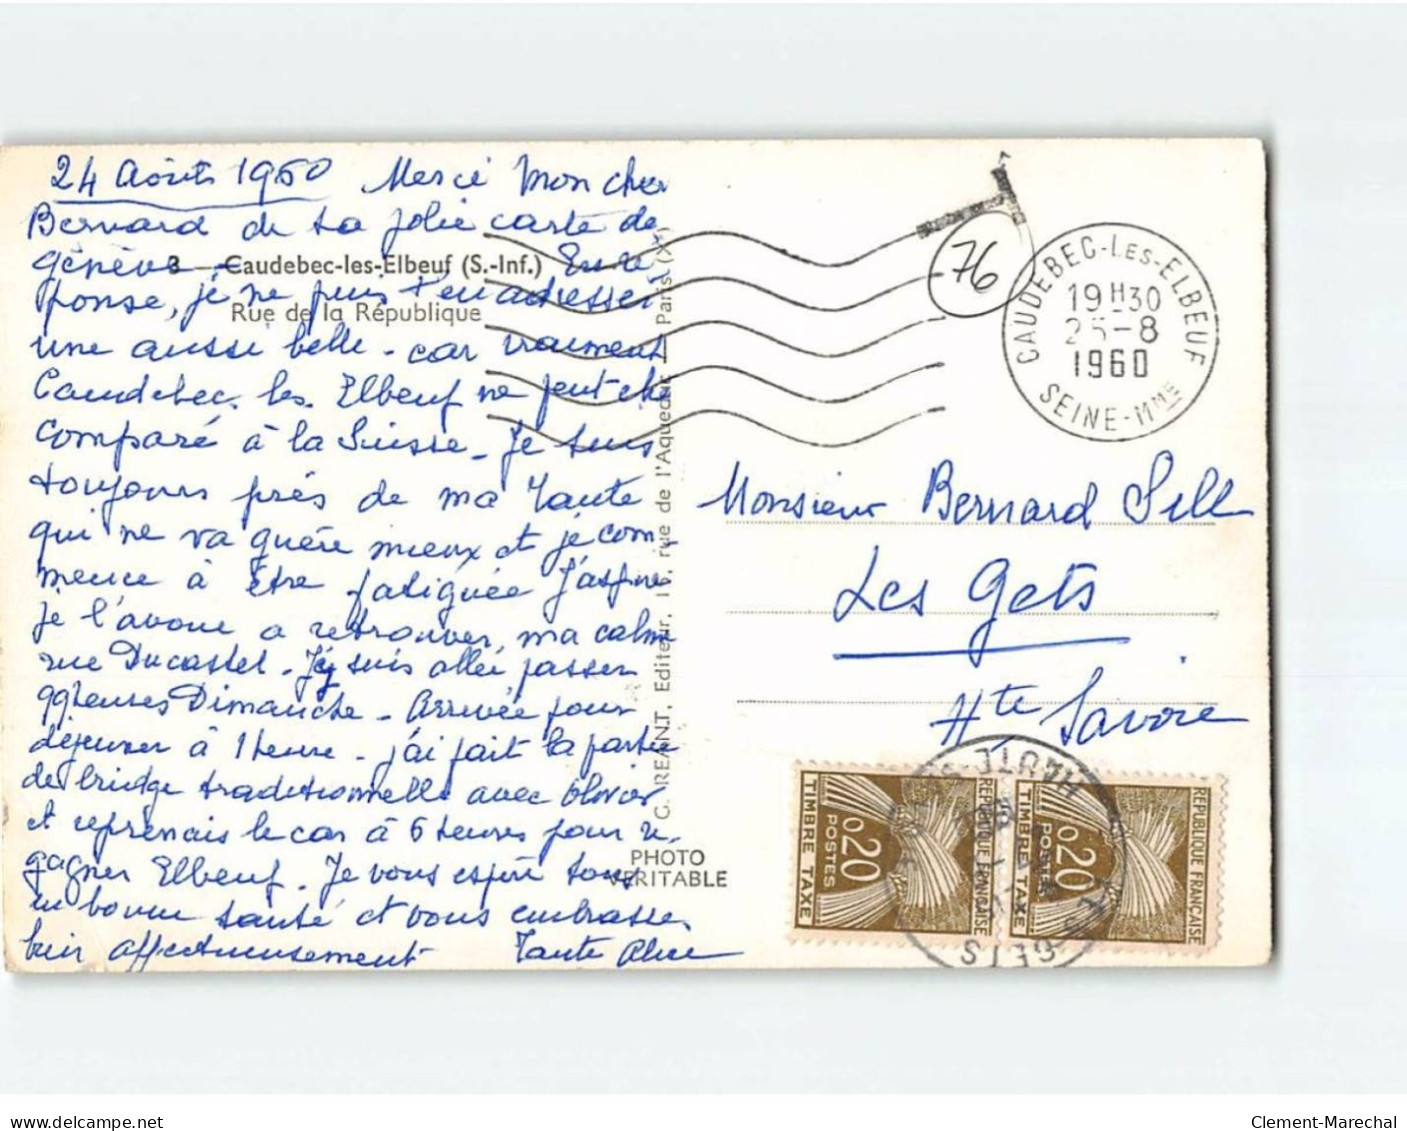 24 Août 1960 Merci mon cher
Bernard de ta jolie carte de
Genève. En ré
ponse, je ne puis t'en adresser
une aussi belle - car vraiment
Caudebec. les. Elbeuf ne peut être
comparé à la Suisse - Je suis
toujours près de ma Tante
qui ne va guère mieux et je com-
mence à être fatiguée J'aspire
je l'avoue a retrouver, ma calme
rue Ducastel. J'y suis allée passer
qq heures Dimanche - Arrivée pour
déjeuner à 1 heure - j'ai fait la partie
de bridge traditionnelle avec Olivier
et reprenais le car à 6 heures pour re-
gagner Elbeuf. Je vous espère tous
en bonne santé et vous embrasse
bien affectueusement Tante Alice
3 — Caudebec-les-Elbeuf (S.-Inf.)
Rue de la République
rue de l'Aqueduc — Paris (Xe)
PHOTO
VÉRITABLE
T
76
CAUDEBEC-LES-ELBEUF
19H30
25-8
1960
SEINE-MME
Monsieur Bernard Sill
Les Gets
Hte Savoie
REPUBLIQUE FRANÇAISE
0,20
POSTES
TIMBRE TAXE
REPUBLIQUE FRANÇAISE
0,20
POSTES
TIMBRE TAXE
Clement-Marechal